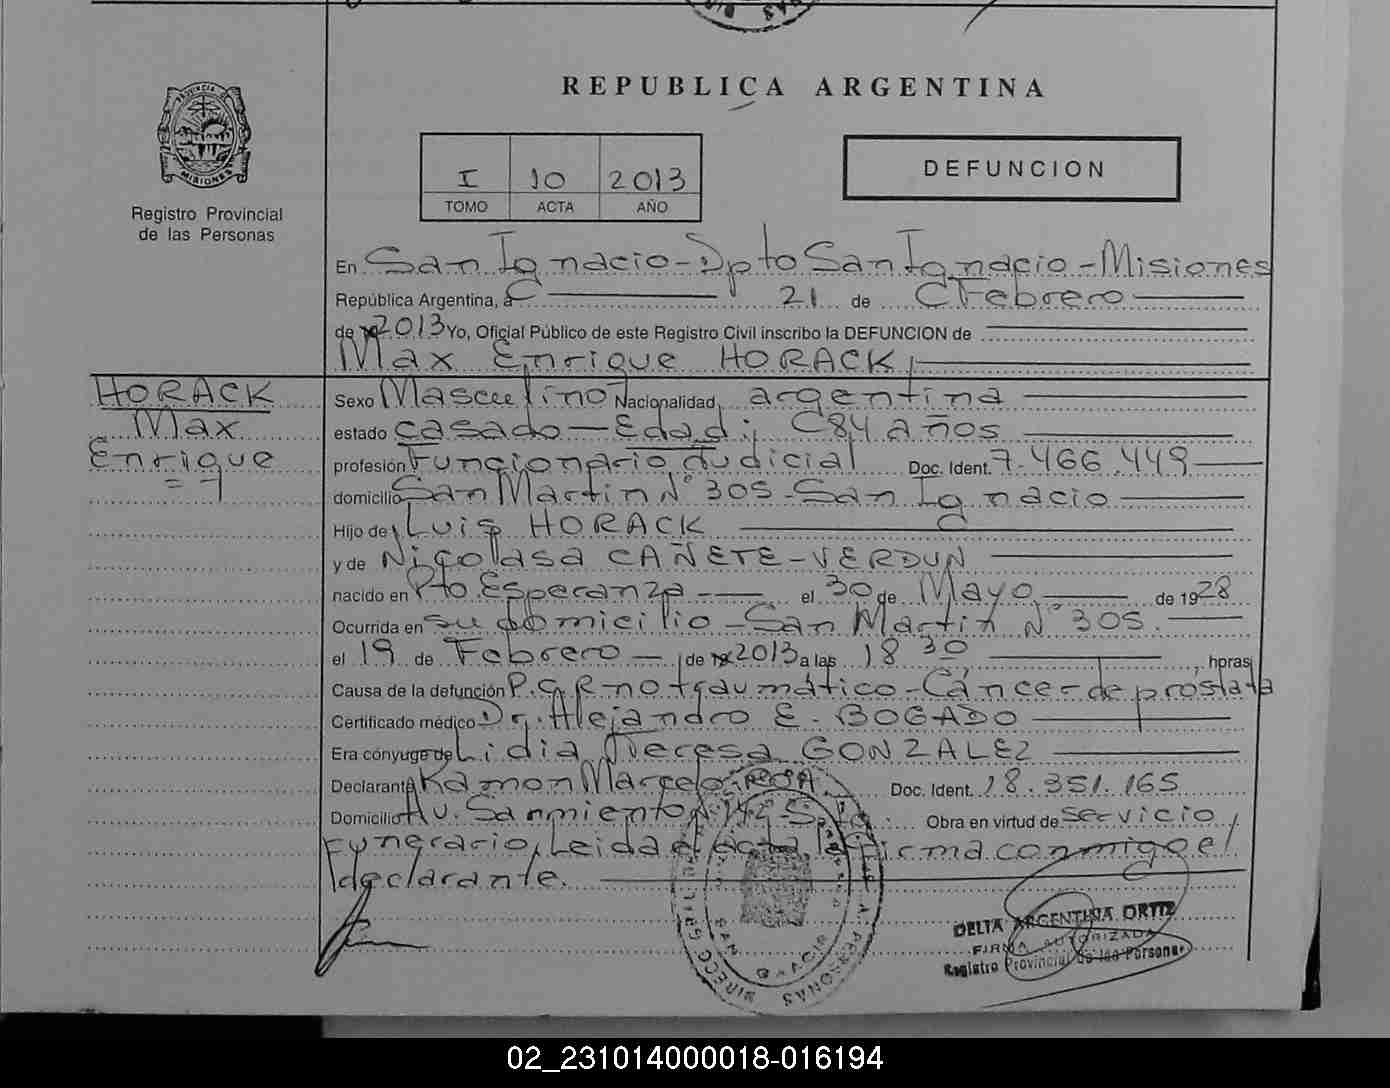 REPUBLICA ARGENTINA
PROVINCIA DE
MISIONES
Registro Provincial
de las Personas
I 10 2013
TOMO ACTA AÑO
DEFUNCION
En San Ignacio - Dpto San Ignacio - Misiones
República Argentina, a 21 de Febrero
de 2013 Yo, Oficial Público de este Registro Civil inscribo la DEFUNCION de
Max Enrique HORACK
HORACK
Max
Enrique
Sexo Masculino Nacionalidad argentina
estado casado - Edad: 84 años
profesión Funcionario Judicial Doc. Ident. 7.466.449
domicilio San Martin N° 305 - San Ignacio
Hijo de Luis HORACK
y de Nicolasa CAÑETE - VERDUN
nacido en Pto Esperanza el 30 de Mayo de 1928
Ocurrida en su domicilio - San Martin N° 305.
el 19 de Febrero de 2013 a las 18 30 horas
Causa de la defunción P.C.R no traumático - Cáncer de próstata
Certificado médico Dr. Alejandro E. BOGADO
Era cónyuge de Lidia Teresa GONZALEZ
Declarante Ramon Marcelo Doc. Ident. 18.351.165
Domicilio Av. Sarmiento Obra en virtud de servicio
funerario, Leida el acta la firma conmigo el
declarante.
DELIA ARGENTINA ORTIZ
FIRMA AUTORIZADA
Registro Provincial de las Personas
02_231014000018-016194